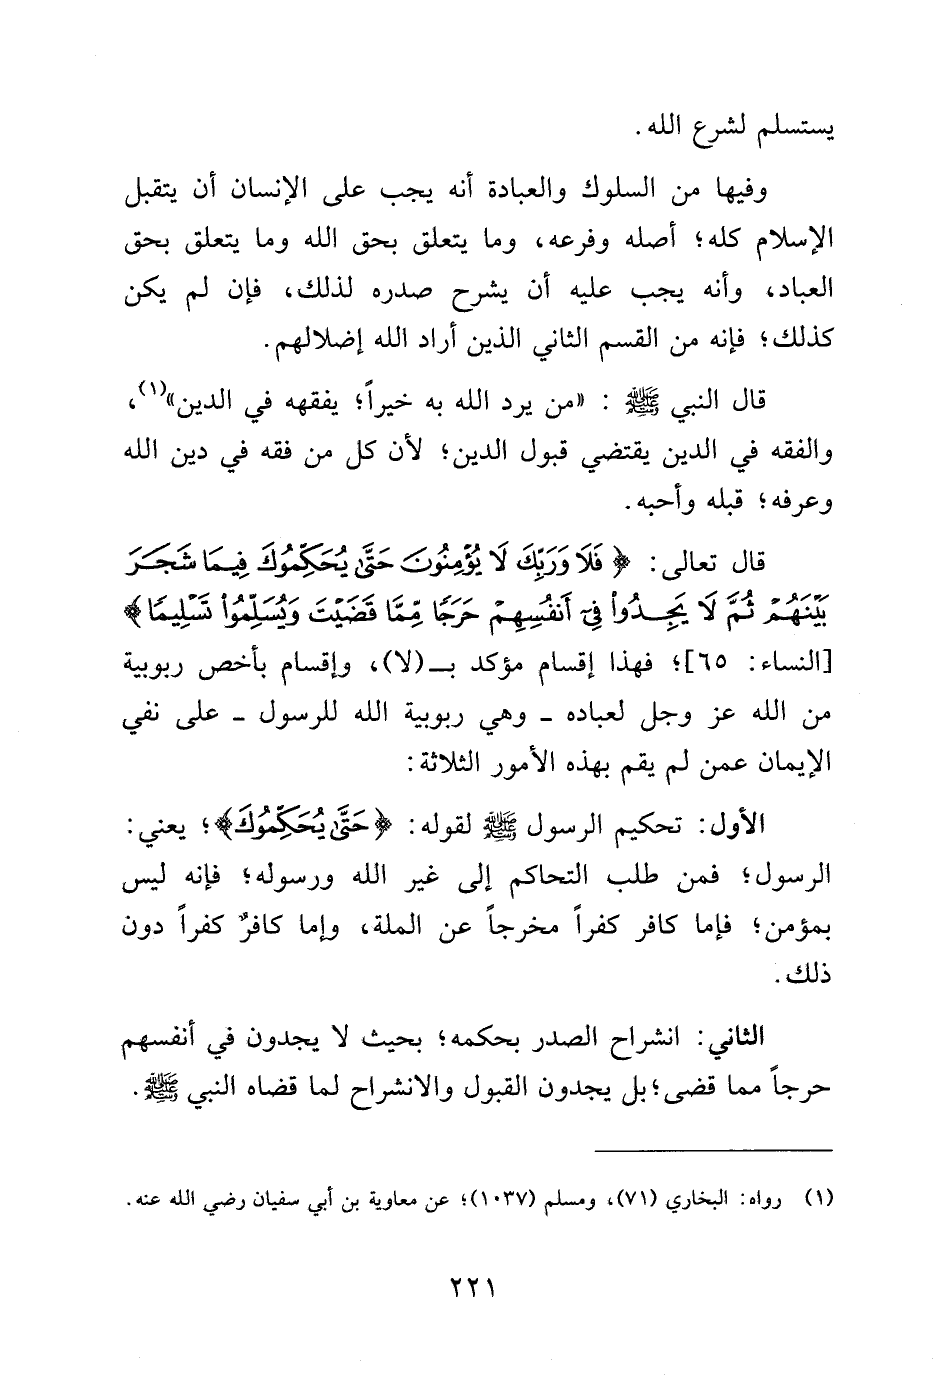 يستسلم لشرع الله.
وفيها من السلوك والعبادة أنه يجب على الإنسان أن يتقبل
الإسلام كله؛ أصله وفرعه، وما يتعلق بحق الله وما يتعلق بحق
العباد، وأنه يجب عليه أن يشرح صدره لذلك، فإن لم يكن
كذلك؛ فإنه من القسم الثاني الذين أراد الله إضلالهم.
قال النبي ﷺ : «من يرد الله به خيراً؛ يفقهه في الدين»(١)،
والفقه في الدين يقتضي قبول الدين؛ لأن كل من فقه في دين الله
وعرفه؛ قبله وأحبه.
قال تعالى: ﴿فَلَا وَرَبِّكَ لَا يُؤْمِنُونَ حَتَّىٰ يُحَكِّمُوكَ فِيمَا شَجَرَ
بَيْنَهُمْ ثُمَّ لَا يَجِدُواْ فِىٓ أَنفُسِهِمْ حَرَجًا مِّمَّا قَضَيْتَ وَيُسَلِّمُواْ تَسْلِيمًا﴾
[النساء: ٦٥]؛ فهذا إقسام مؤكد بـ(لا)، وإقسام بأخص ربوبية
من الله عز وجل لعباده ـ وهي ربوبية الله للرسول ـ على نفي
الإيمان عمن لم يقم بهذه الأمور الثلاثة:
الأول: تحكيم الرسول ﷺ لقوله: ﴿حَتَّىٰ يُحَكِّمُوكَ﴾؛ يعني:
الرسول؛ فمن طلب التحاكم إلى غير الله ورسوله؛ فإنه ليس
بمؤمن؛ فإما كافر كفراً مخرجاً عن الملة، وإما كافرٌ كفراً دون
ذلك.
الثاني: انشراح الصدر بحكمه؛ بحيث لا يجدون في أنفسهم
حرجاً مما قضى؛ بل يجدون القبول والانشراح لما قضاه النبي ﷺ.
(١) رواه: البخاري (٧١)، ومسلم (١٠٣٧)؛ عن معاوية بن أبي سفيان رضي الله عنه.
٢٢١